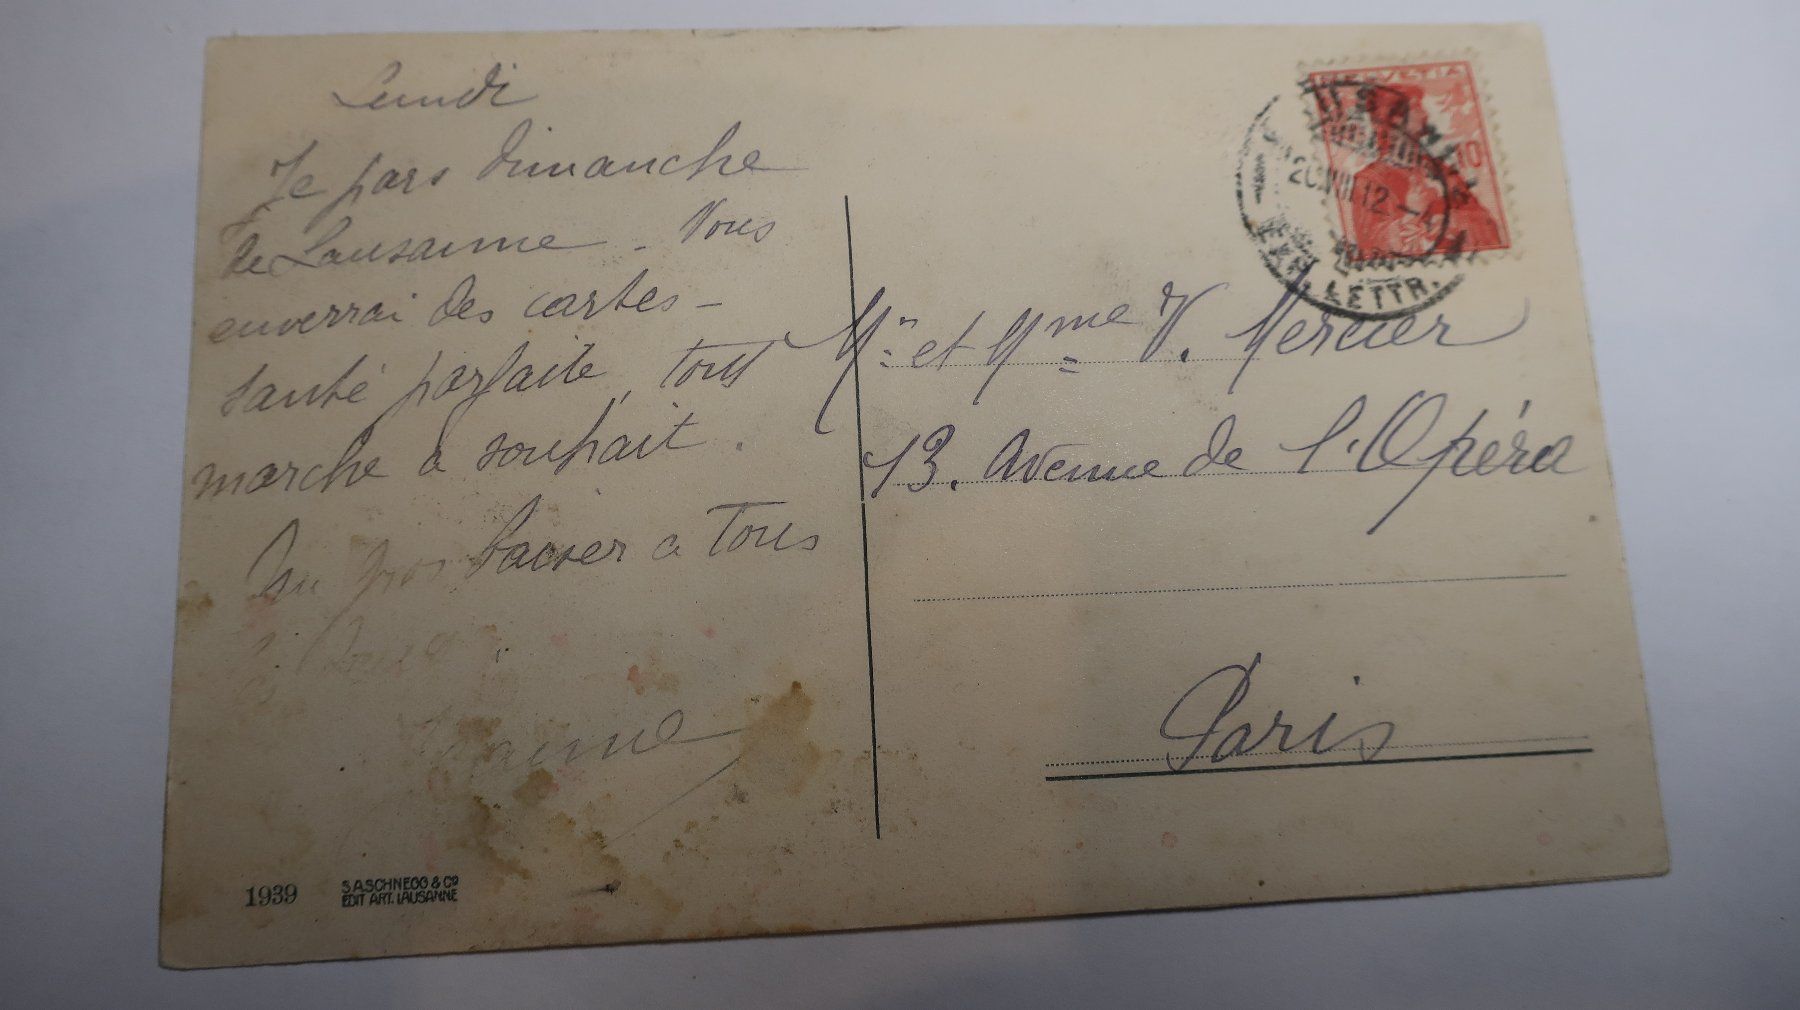 Lundi
Je pars dimanche
de Lausanne - Vous
enverrai des cartes -
santé parfaite, tout
marche a souhait.
Un gros baiser a Tous
HELVETIA
10
12
LETTR.
Mr et Mme V. Mercier
13. Avenue de l'Opéra
Paris
1939
S.A. SCHNEGG & Co
EDIT ART. LAUSANNE